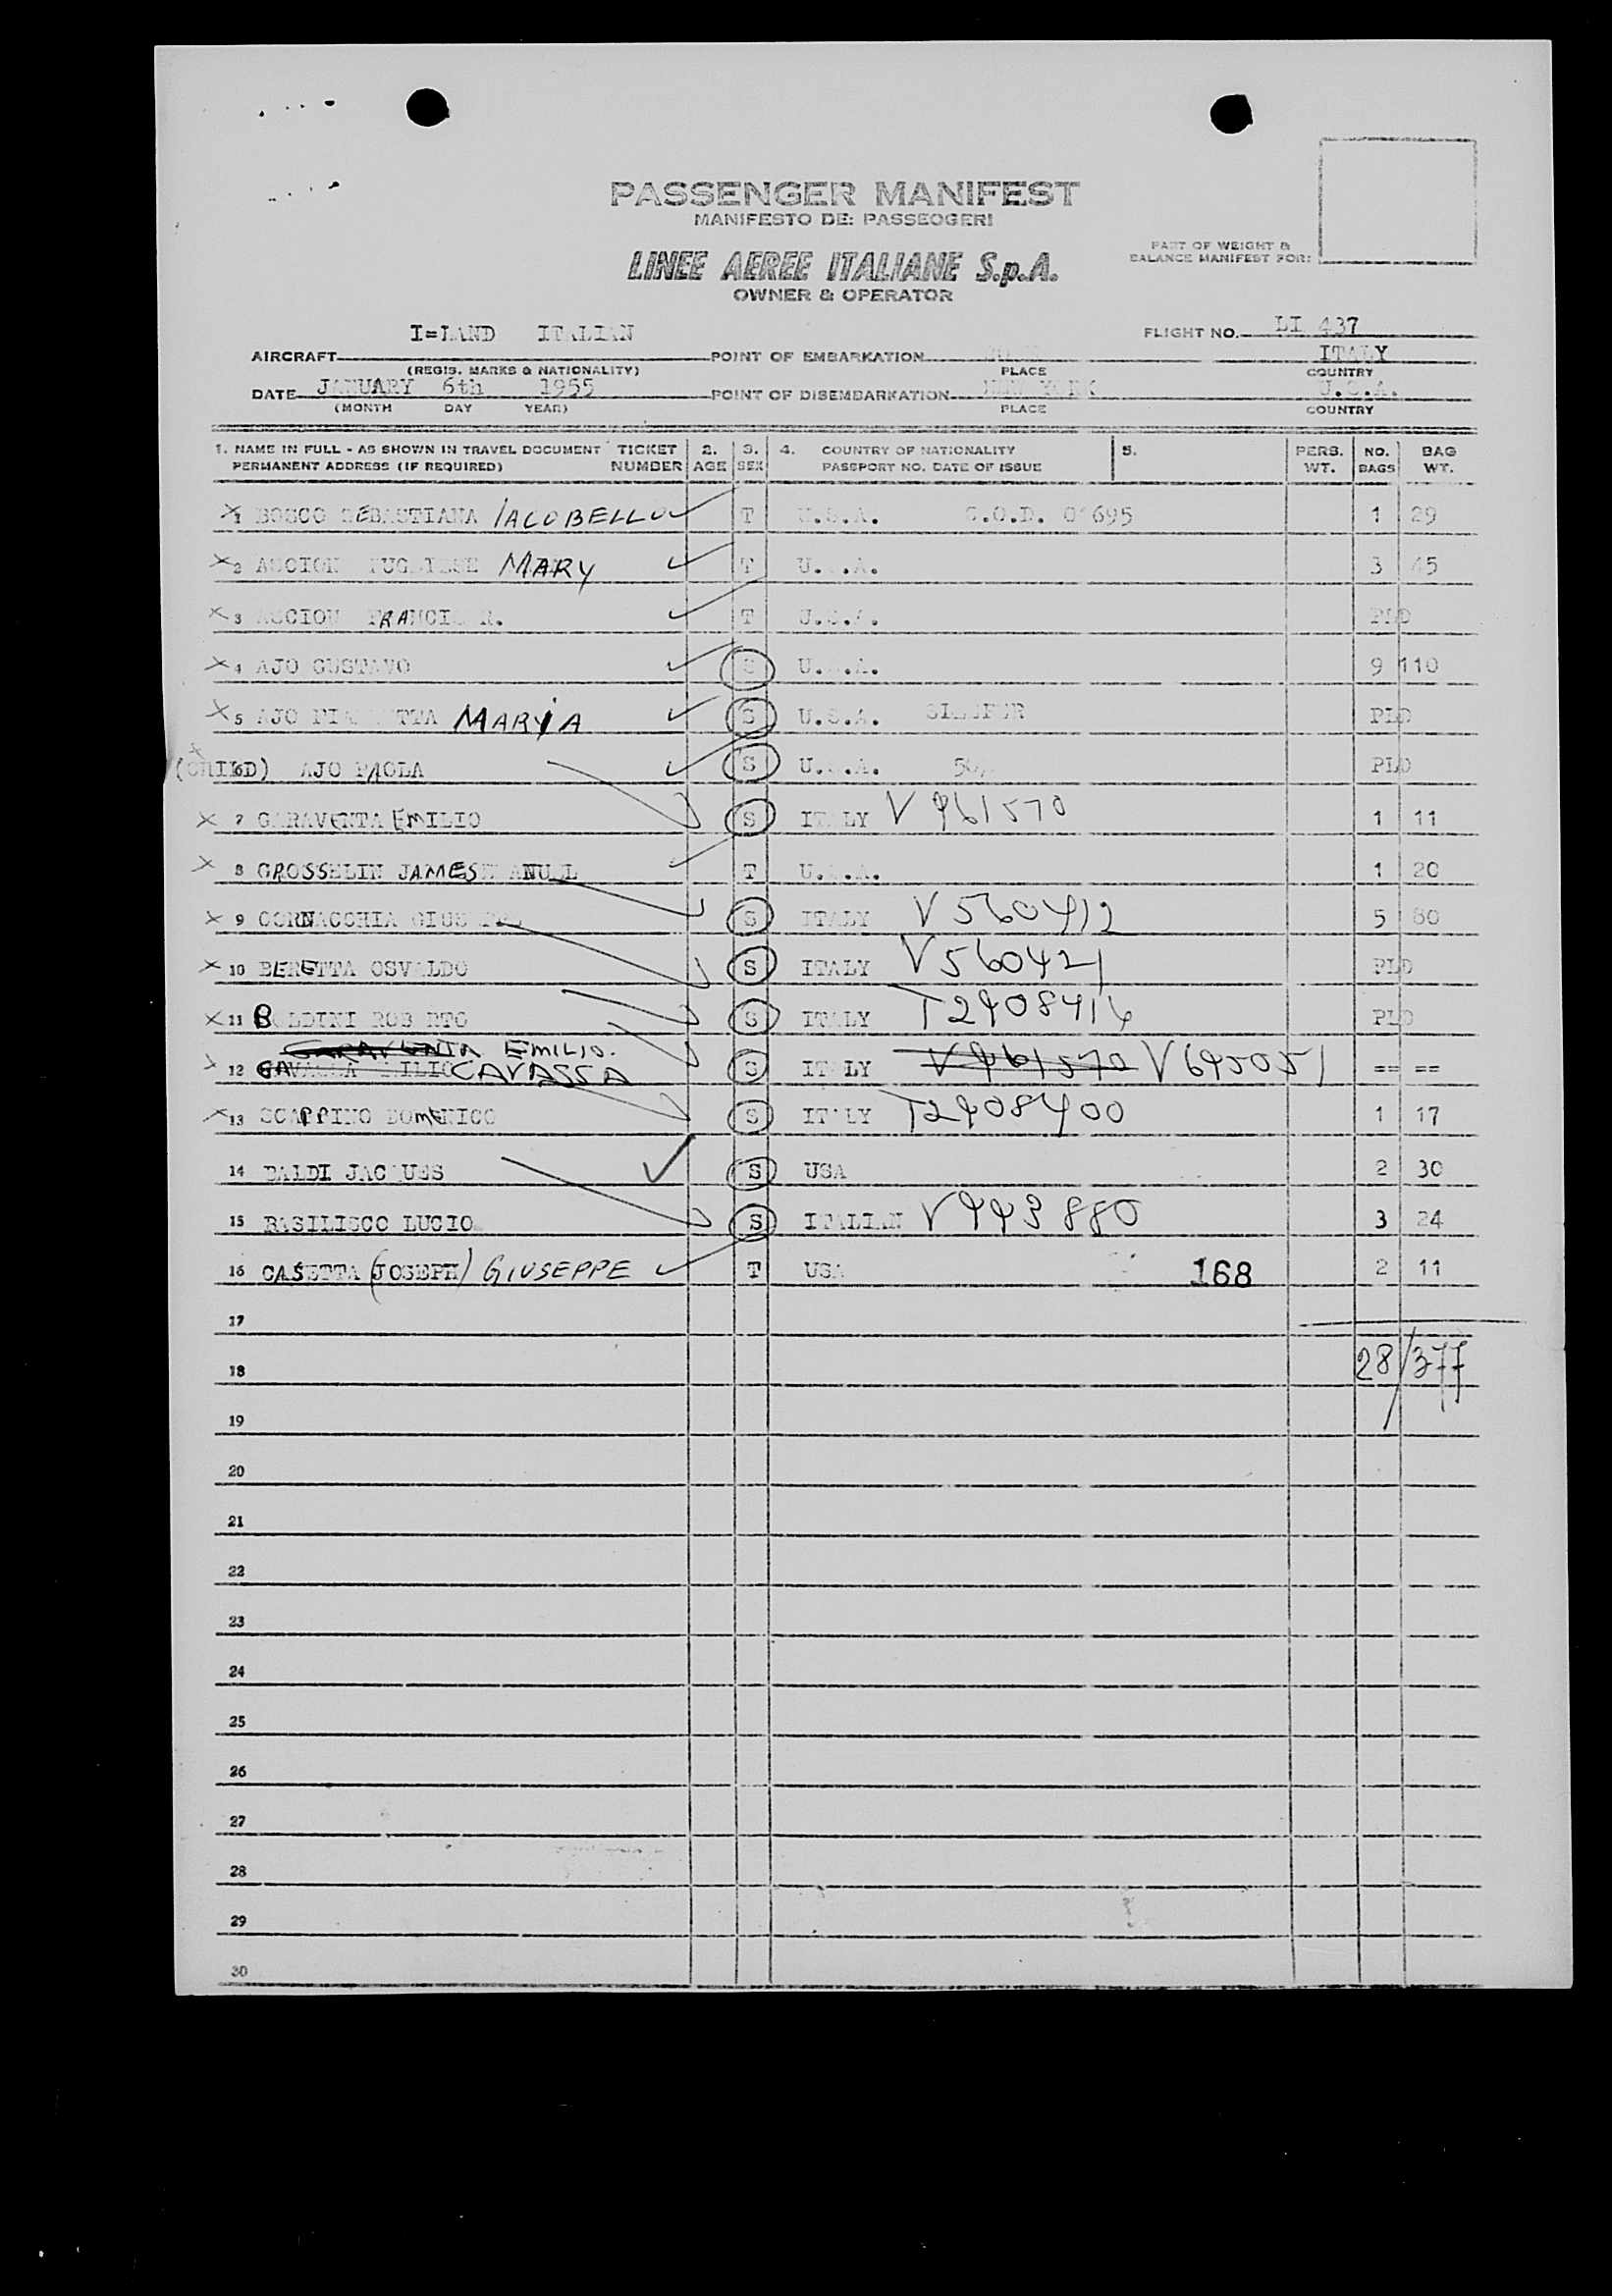 PASSENGER MANIFEST
MANIFESTO DE: PASSEOGERI
PART OF WEIGHT &
BALANCE MANIFEST FOR:
LINEE AEREE ITALIANE S.p.A.
OWNER & OPERATOR
I=LAND ITALIAN FLIGHT NO. LI 437
AIRCRAFT POINT OF EMBARKATION ITALY
(REGIS. MARKS & NATIONALITY) PLACE COUNTRY
DATE JANUARY 6th 1955 POINT OF DISEMBARKATION NEW YORK U.S.A.
(MONTH DAY YEAR) PLACE COUNTRY
1. NAME IN FULL - AS SHOWN IN TRAVEL DOCUMENT TICKET 2. 3. 4. COUNTRY OF NATIONALITY 5. PERS. NO. BAG
PERMANENT ADDRESS (IF REQUIRED) NUMBER AGE SEX PASSPORT NO. DATE OF ISSUE WT. BAGS WT.
1 BOSCO SEBASTIANA IACOBELLO T U.S.A. 1 29
2 MARY T U.S.A. 3 45
3 R. T U.S.A. PLD
4 AJO GUSTAVO S U.S.A. 9 110
5 AJO MARIA S U.S.A. PLD
(CHILD) AJO PAOLA S U.S.A. PLD
7 GARAVENTA EMILIO S ITALY V 961570 1 11
8 GROSSELIN JAMES T U.S.A. 1 20
9 CORNACCHIA GIUSEPPE S ITALY V 560412 5 80
10 BERETTA OSVALDO S ITALY V 560421 PLD
11 BALDINI ROBERTO S ITALY T2908416 PLD
GARAVENTA EMILIO.
12 CAVASSA S ITALY V 961570 V 695051 == ==
13 SCAPPINO DOMENICO S ITALY T2908400 1 17
14 BALDI JACQUES S USA 2 30
15 BASILISCO LUCIO S ITALIAN V 993880 3 24
16 CASETTA (JOSEPH) GIUSEPPE T USA 168 2 11
17
18 28/377
19
20
21
22
23
24
25
26
27
28
29
30